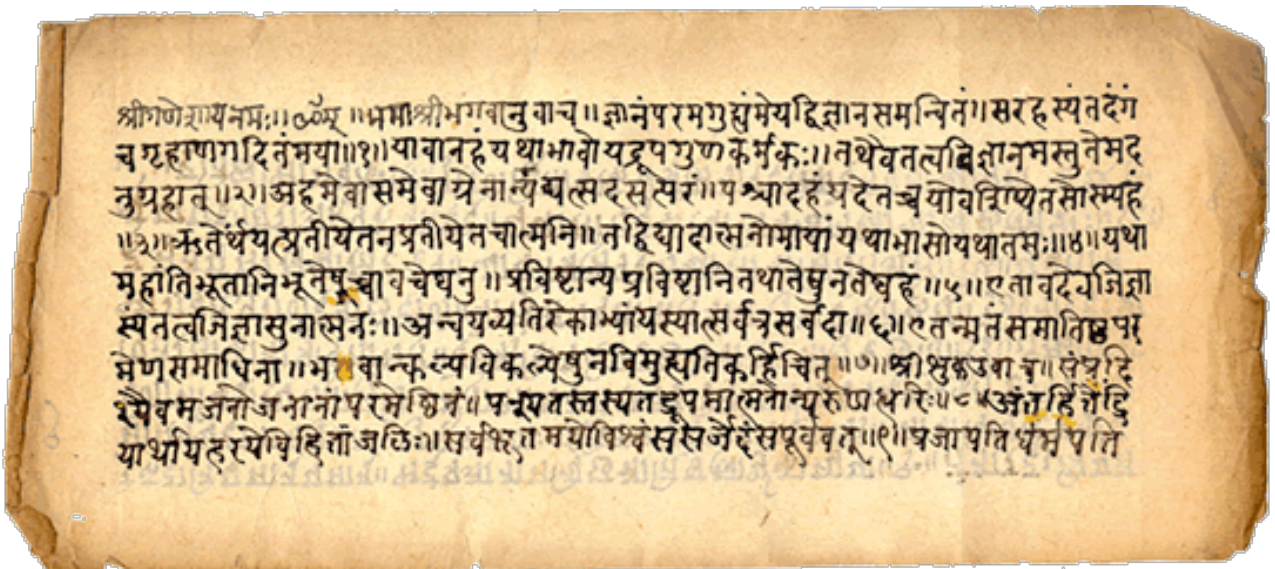 श्रीगणेशायनमः॥ॐ॥ श्रीभगवानुवाच॥ज्ञानंपरमगुह्यंमेयद्विज्ञानसमन्वितं॥सरहस्यंतदंगं
चगृहाणगदितंमया॥१॥यावानहंयथाभावोयद्रूपगुणकर्मकः॥तथैवतत्वविज्ञानमस्तुतेमद
नुग्रहात्॥२॥अहमेवासमेवाग्रेनान्यद्यत्सदसत्परं॥पश्चादहंयदेतच्चयोवशिष्येतसोस्म्यहं
॥३॥ऋतेर्थंयत्प्रतीयेतनप्रतीयेतचात्मनि॥तद्विद्यादात्मनोमायांयथाभासोयथातमः॥४॥यथा
महांतिभूतानिभूतेषूच्चावचेष्वनु॥प्रविष्टान्यप्रविष्टानितथातेषुनतेष्वहं॥५॥एतावदेवजिज्ञा
स्यंतत्वजिज्ञासुनात्मनः॥अन्वयव्यतिरेकाभ्यांयस्यात्सर्वत्रसर्वदा॥६॥एतन्मतंसमातिष्ठपर
मेणसमाधिना॥भवान्कल्पविकल्पेषुनविमुह्यतिकर्हिचित्॥७॥श्रीशुकउवाच॥संप्रदि
श्यैवमजनोजनानांपरमेष्ठिनं॥पश्यतस्तस्यतद्रूपमात्मनोन्यरुणद्धरिः॥८॥अंतर्हितेंद्रि
यार्थायहरयेविहितांजलिः॥सर्वभूतमयोविश्वंससर्जेदंसपूर्ववत्॥९॥प्रजापतिर्धर्मपति